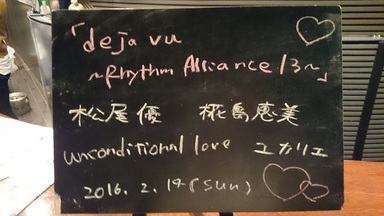 「deja vu
~Rhythm Alliance 13~」
松屋優 椛島恵美
unconditional love ユカリエ
2016. 2. 14 (sun)